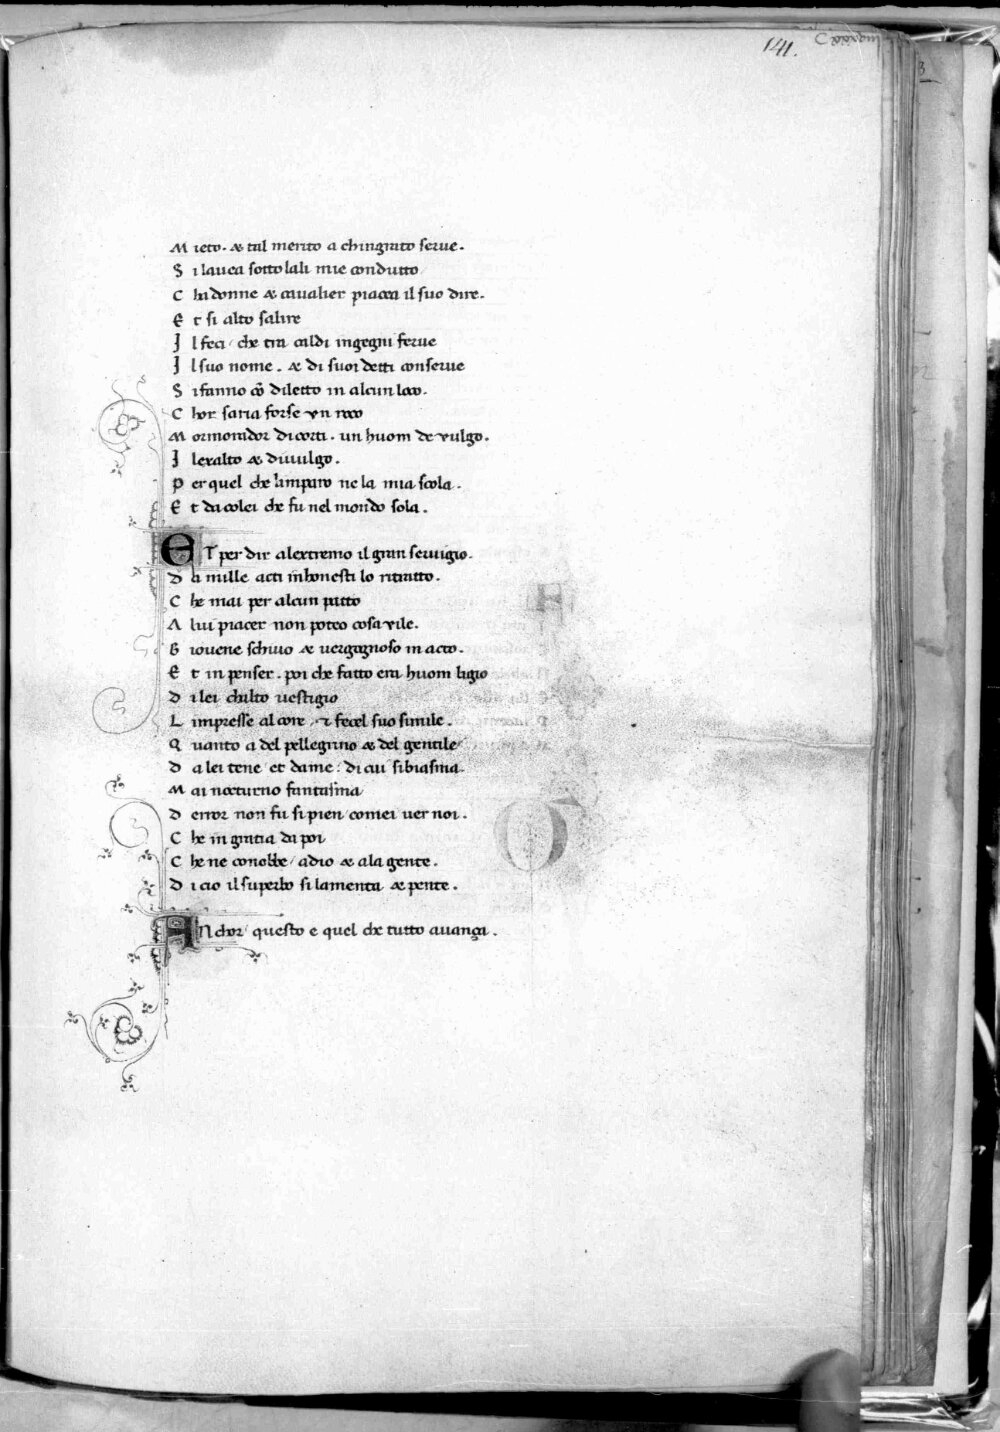 141.
M ieto. & tal merito a chingrato serue.
S i lauea sotto lali mie condutto
C hadonne & caualier piacea il suo dire.
E t si alto salire
I l feci / che tra caldi ingegni ferue
I l suo nome. & di suoi detti conserue
S i fanno cō diletto in alcun loco.
C hor saria forse vn roco
M ormorador di corti. un huom de vulgo.
I lexalto & diuulgo.
P er quel che limparo ne la mia scola.
E t da colei che fu nel mondo sola.
E T per dir alextremo il gran seruigio.
D a mille acti inhonesti lo ritratto.
C he mai per alcun patto
A lui piacer non poteo cosa vile.
G iouene schiuo & uergognoso in acto.
E t in penser. poi che fatto era huom ligio
D i lei chalto uestigio
L impresse al core / & fecel suo simile.
Q uanto a del pellegrino & del gentile
D a lei tene / et da me: di cui si biasma.
M ai nocturno fantasma
D error non fu si pien / comei uer noi.
C he in gratia da poi
C he ne conobbe / adio & ala gente.
D i cio il superbo si lamenta & pente.
A N chor / questo e quel che tutto auança.